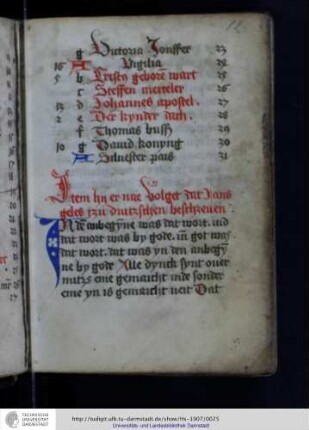 12
g Victoria Jonffer 23
16 A Vigilia 24
5 b Cristy gebore wart 25
c Steffen merteler 26
13 d Johannes apostel. 27
2 e Der kynder dach. 28
f Thomas buss 29
10 g Dauid konyng 30
A Siluester pais 31
Item hy er nae Volget dat Jans
geles tzu dutzschen beschreuen
INde anbegyne was dat wort. vnd
dat wort was by gode. vn got was
dat wort. dat was yn den anbegy
ne by gode Alle dynck synt ouer
mitz eme gemaicht inde sonder
eme yn is gemaicht neit Dat
TECHNISCHE
UNIVERSITÄT
DARMSTADT
http://tudigit.ulb.tu-darmstadt.de/show/Hs-1907/0025
Universitäts- und Landesbibliothek Darmstadt